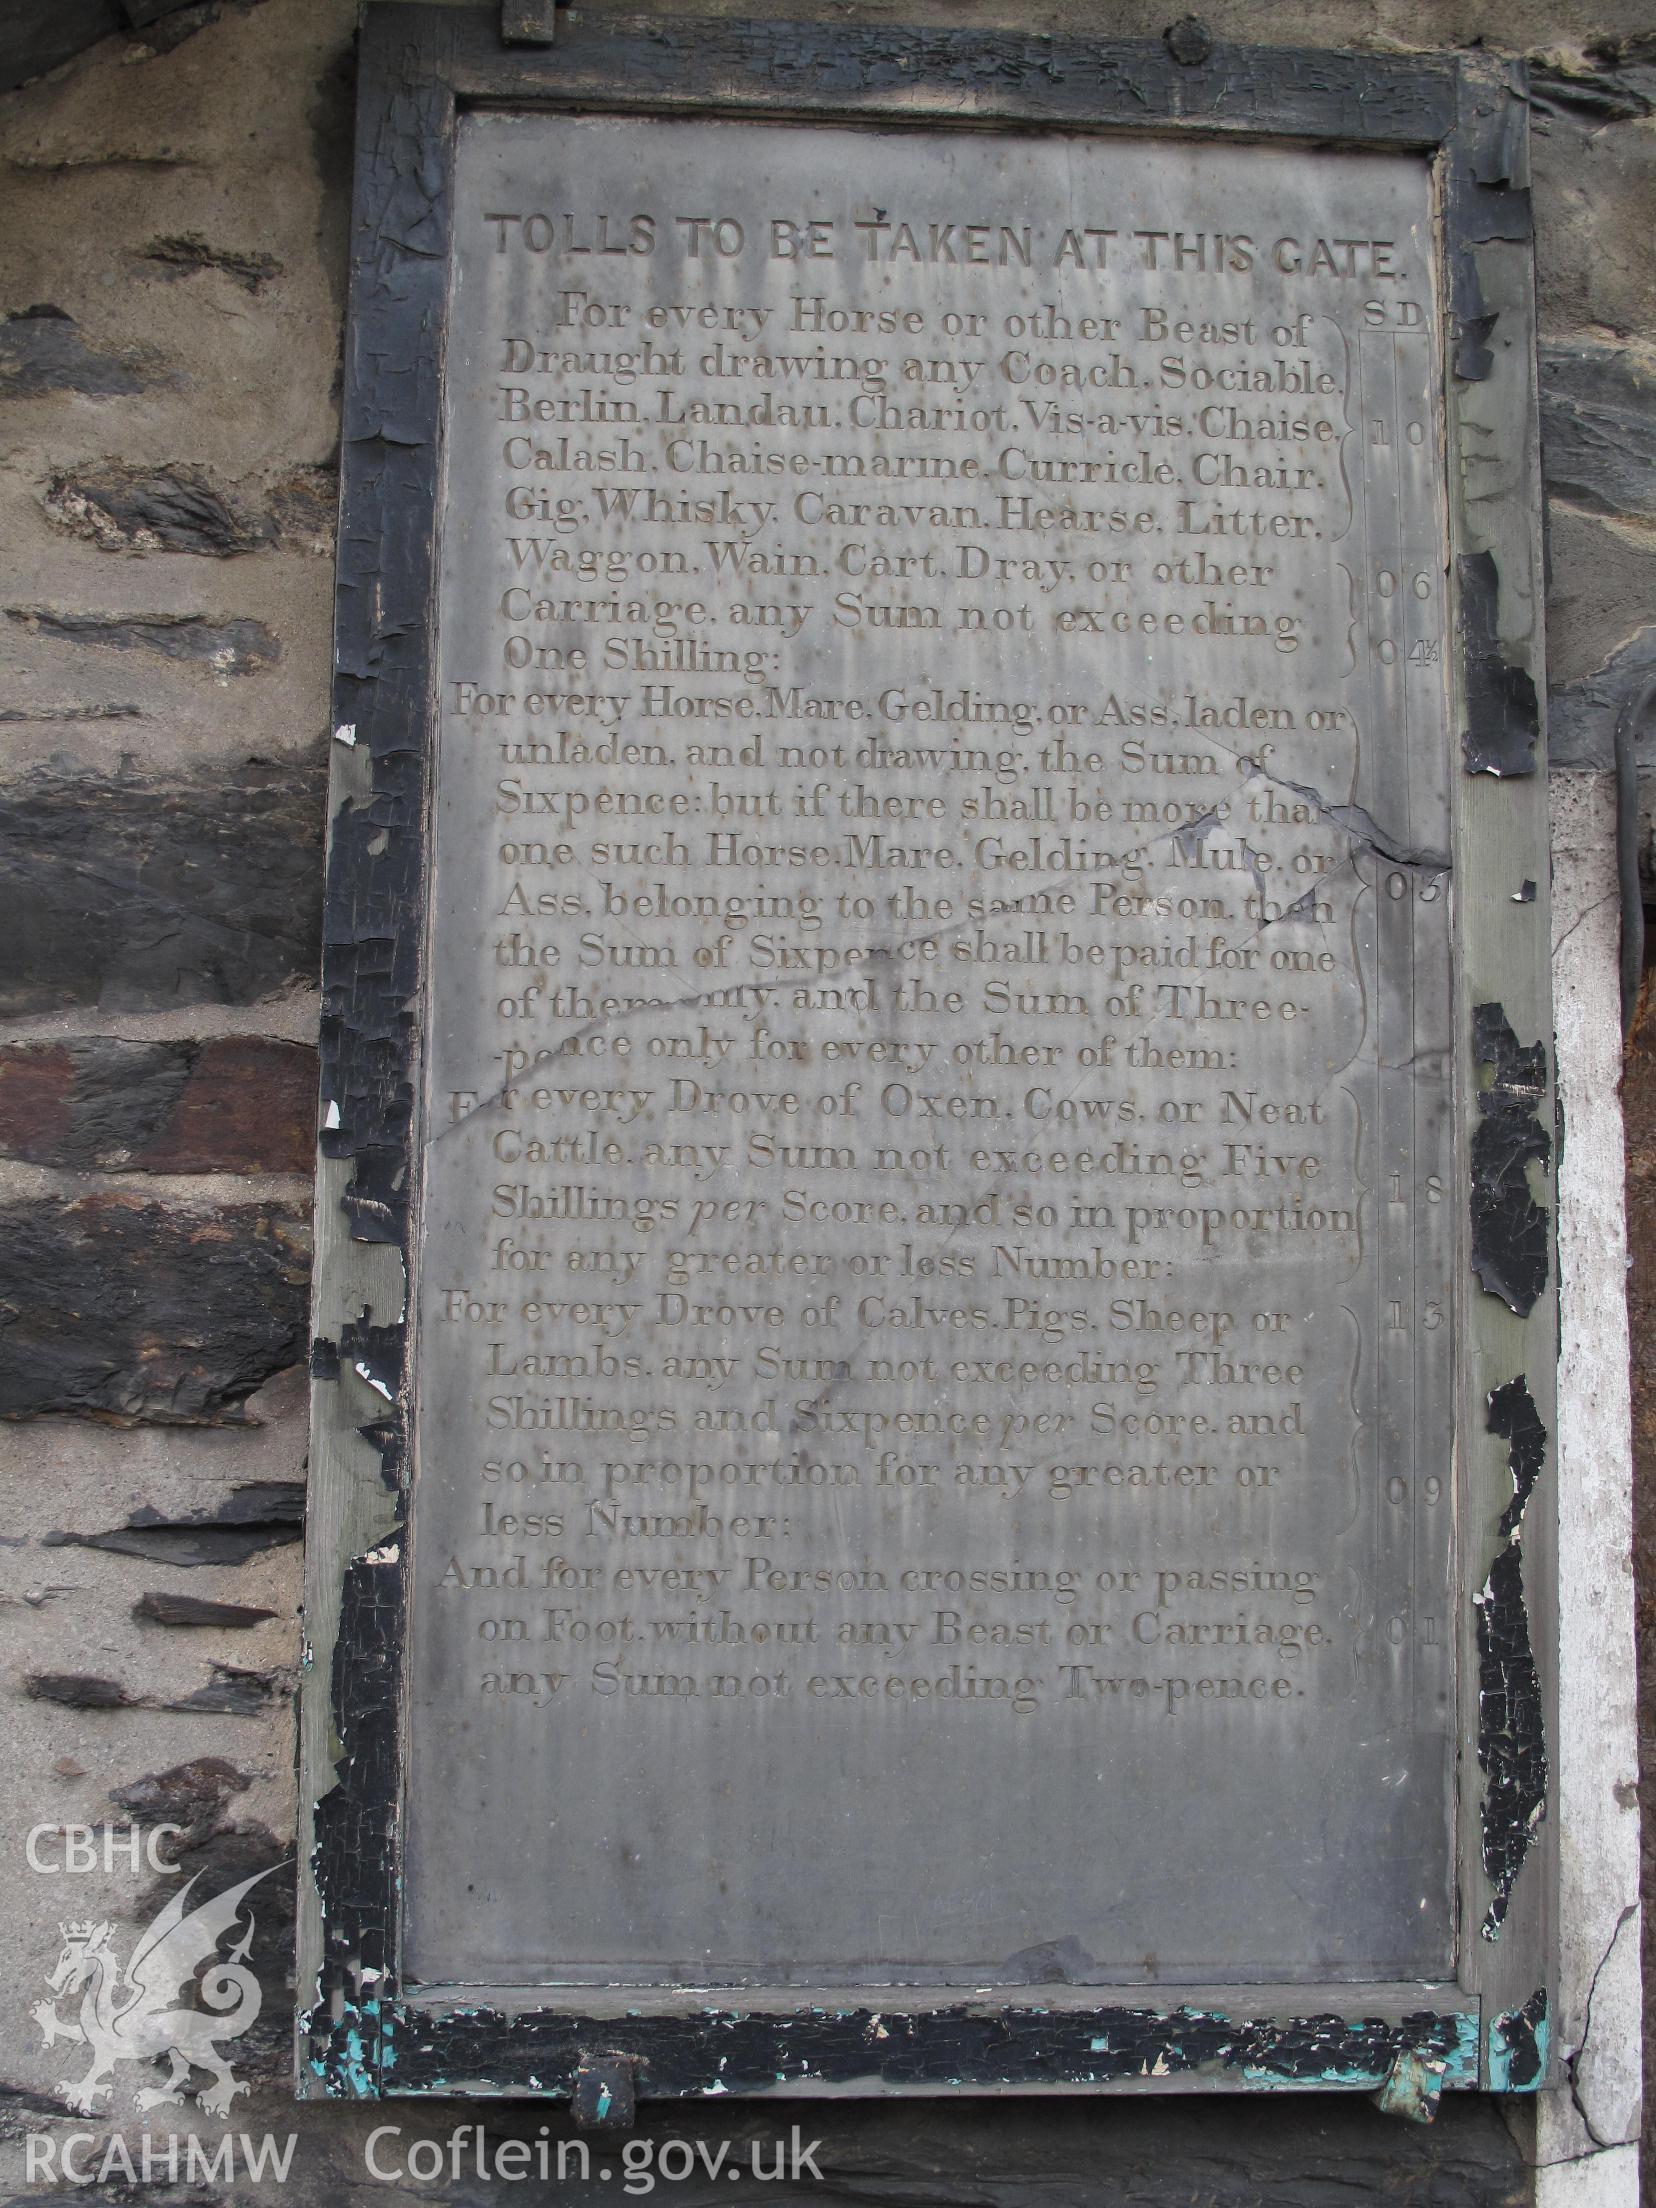 TOLLS TO BE TAKEN AT THIS GATE.
S D
For every Horse or other Beast of
Draught drawing any Coach, Sociable,
Berlin, Landau, Chariot, Vis-a-vis, Chaise, 1 0
Calash, Chaise-marine, Curricle, Chair,
Gig, Whisky, Caravan, Hearse, Litter,
Waggon, Wain, Cart, Dray, or other 0 6
Carriage, any Sum not exceeding
One Shilling: 0 4½
For every Horse, Mare, Gelding, or Ass, laden or
unladen, and not drawing, the Sum of
Sixpence: but if there shall be more than
one such Horse, Mare, Gelding, Mule, or 0 3
Ass, belonging to the same Person, then
the Sum of Sixpence shall be paid for one
of them only, and the Sum of Three-
-pence only for every other of them:
For every Drove of Oxen, Cows, or Neat
Cattle, any Sum not exceeding Five
Shillings per Score, and so in proportion 1 8
for any greater or less Number:
For every Drove of Calves, Pigs, Sheep or 1 3
Lambs, any Sum not exceeding Three
Shillings and Sixpence per Score, and
so in proportion for any greater or 0 9
less Number:
And for every Person crossing or passing
on Foot, without any Beast or Carriage, 0 1
any Sum not exceeding Two-pence.
CBHC
RCAHMW Coflein.gov.uk